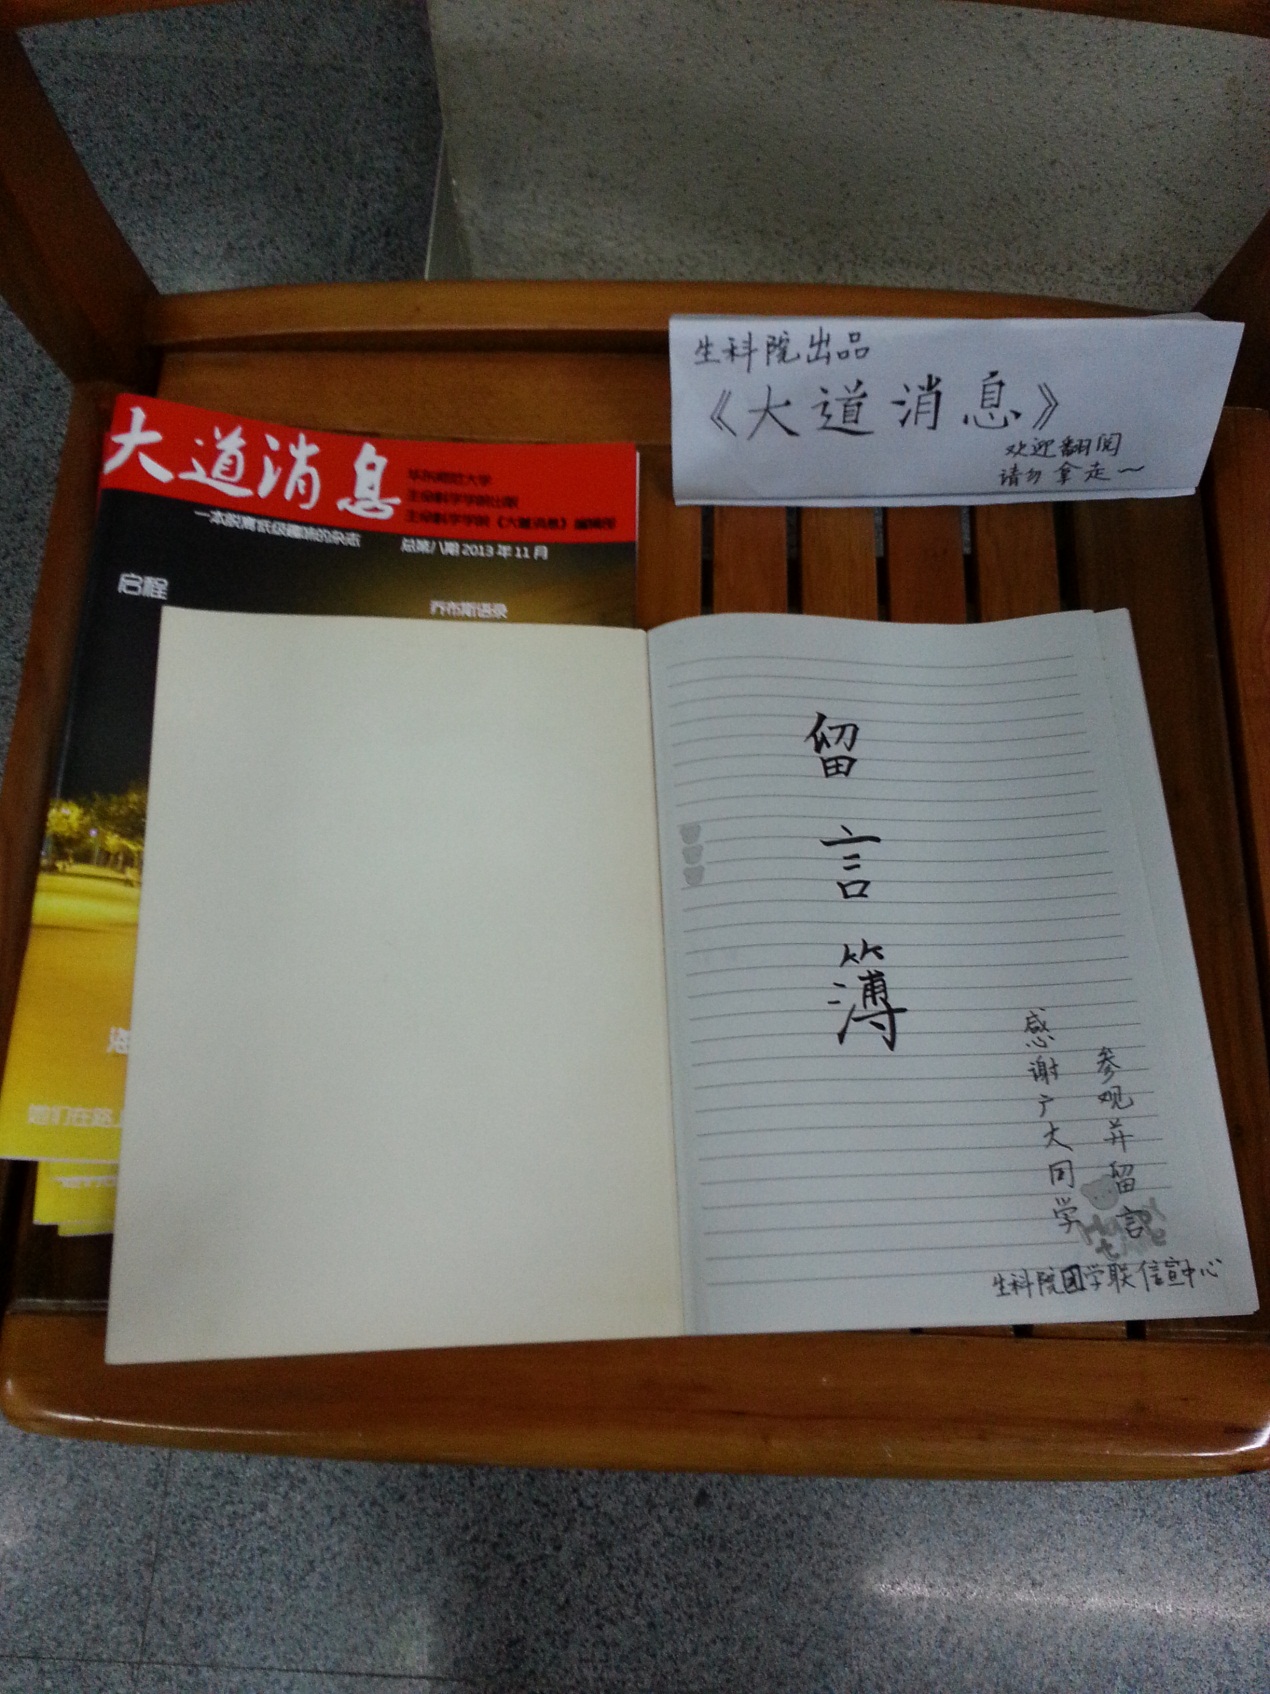 生科院出品
《大道消息》
欢迎翻阅
请勿拿走～
大道消息
华东师范大学
生命科学学院出版
生命科学学院《大道消息》编辑部
一本脱离低级趣味的杂志
总第八期 2013 年 11 月
启程
乔布斯语录
她们在路上
留言簿
感谢广大同学
参观并留言
Happy
time
生科院团学联信宣中心